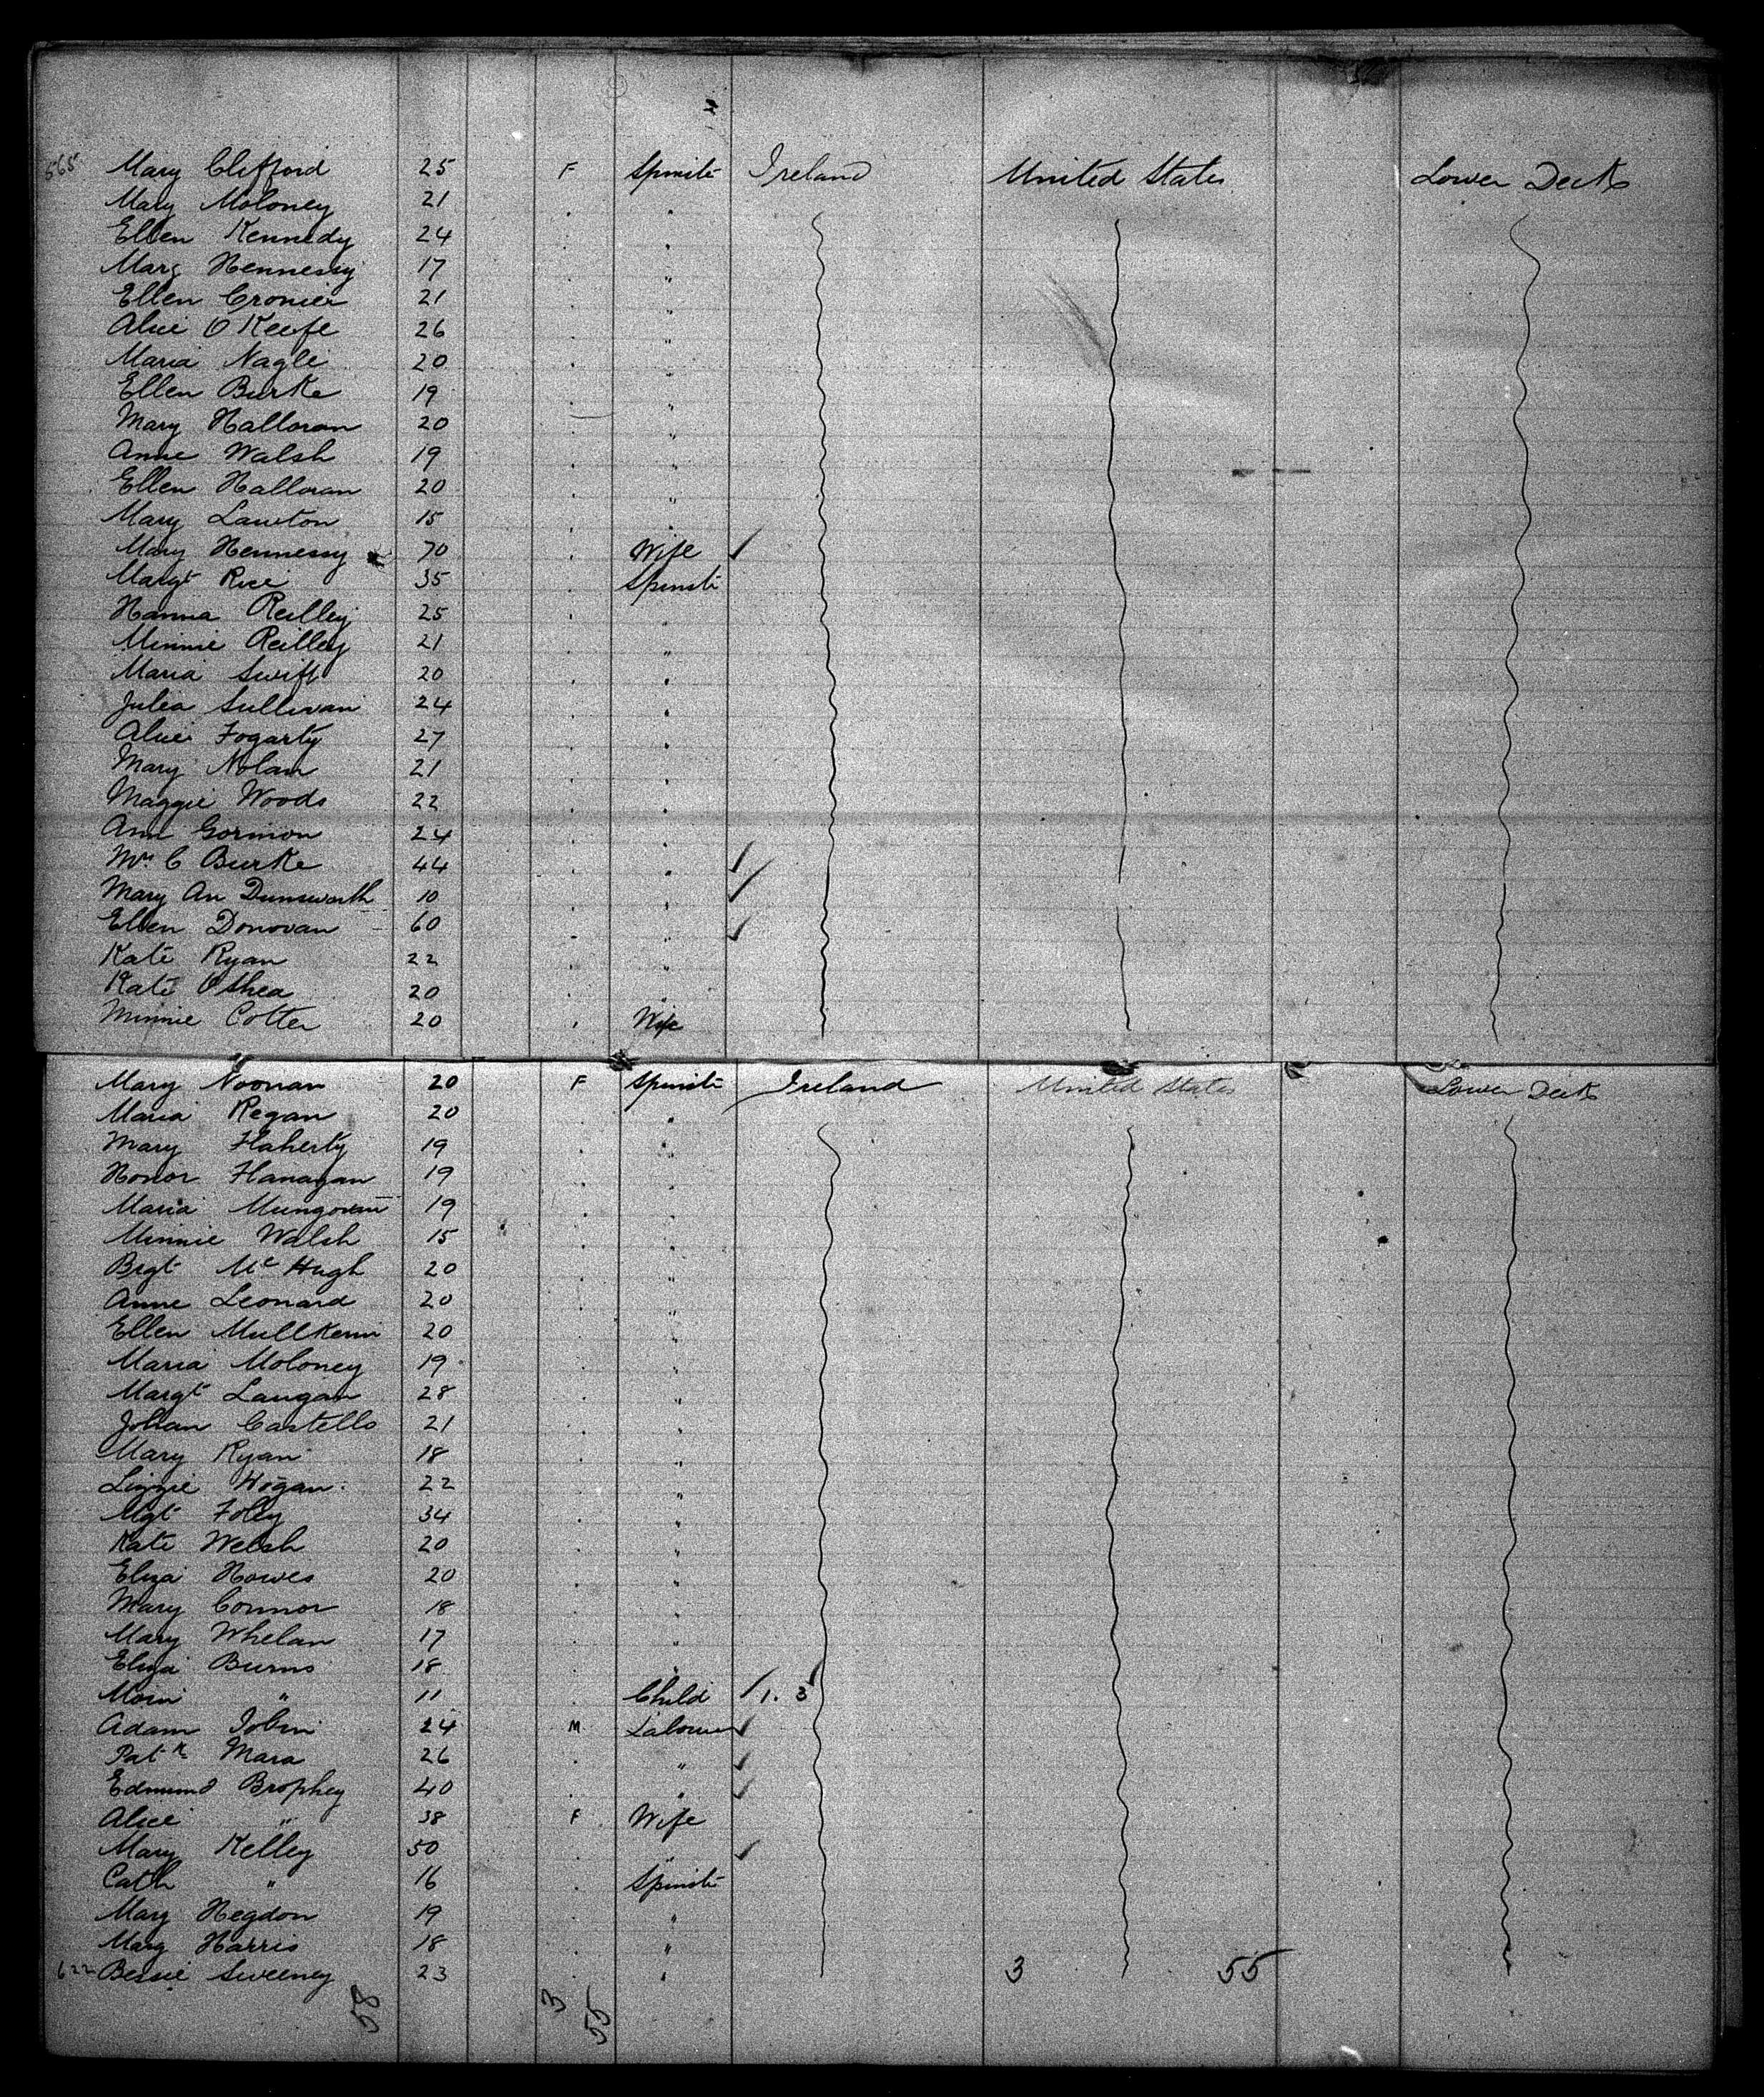 565 Mary Clifford 25 F Spinstr Ireland United States Lower Deck
Mary Moloney 21 . "
Ellen Kennedy 24 . "
Marg Hennessy 17 . "
Ellen Cronier 21 . "
Alice O Keefe 26 . "
Maria Nagle 20 . "
Ellen Burke 19 . "
Mary Halloran 20 . "
Anne Walsh 19 . "
Ellen Halloran 20 . "
Mary Lawton 15 . "
Mary Hennessy 70 . Wife
Margt Rice 35 . Spinstr
Hanna Reilley 25 . "
Minnie Reilley 21 . "
Maria Swift 20 . "
Julia Sullivan 24 . "
Alice Fogarty 27 . "
Mary Nolan 21 . "
Maggie Woods 22 . "
Ann Gormon 24 . "
Mrs C Burke 44 . "
Mary An Dunsworth 10 . "
Ellen Donovan 60 . "
Kate Ryan 22 . "
Kate OShea 20 . "
Minnie Cotter 20 . Wife
Mary Noonan 20 F Spinstr Ireland United States Lower Deck
Maria Regan 20 . "
Mary Flaherty 19 . "
Honor Flanagan 19 . "
Maria Mungovan 19 . "
Minnie Walsh 15 . "
Brgt Mc Hugh 20 . "
Anne Leonard 20 . "
Ellen Mullkerin 20 . "
Maria Moloney 19 . "
Margt Langan 28 . "
Johan Castello 21 . "
Mary Ryan 18 . "
Lizzie Hogan 22 . "
Mgt Foley 34 . "
Kate Welsh 20 . "
Eliza Howes 20 . "
Mary Connor 18 . "
Mary Whelan 17 . "
Eliza Burns 18 . "
" 11 . Child 1. 3
Adam Tobin 24 M Labourer
Patk Mara 26 . "
Edmund Brophey 40 . "
Alice " 38 F Wife
Mary Kelley 50 . "
Cath " 16 . Spinstr
Mary Hegdon 19 . "
Mary Harris 18 . "
622 Bessie Sweeney 23 . " 3 55
58 3 55